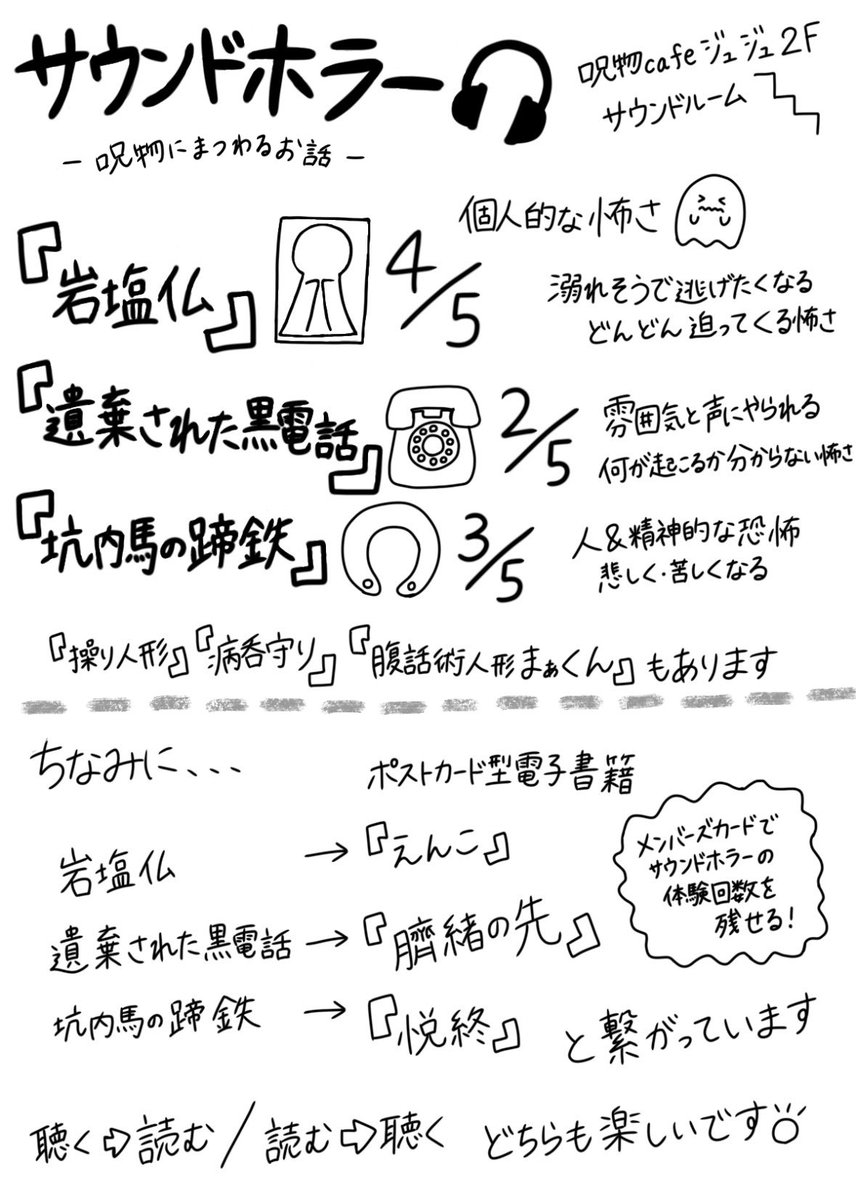 サウンドホラー
呪物cafeジュジュ2F
サウンドルーム
- 呪物にまつわるお話 -
個人的な怖さ
『岩塩仏』 4/5
溺れそうで逃げたくなる
どんどん迫ってくる怖さ
『遺棄された黒電話』 2/5
雰囲気と声にやられる
何が起こるか分からない怖さ
『坑内馬の蹄鉄』 3/5
人&精神的な恐怖
悲しく・苦しくなる
『操り人形』『病呑守り』『腹話術人形まぁくん』もあります
ちなみに、、、
ポストカード型電子書籍
メンバーズカードで
サウンドホラーの
体験回数を
残せる!
岩塩仏 → 『えんこ』
遺棄された黒電話 → 『臍緒の先』
坑内馬の蹄鉄 → 『悦終』 と繋がっています
聴く⇨読む/読む⇨聴く どちらも楽しいです